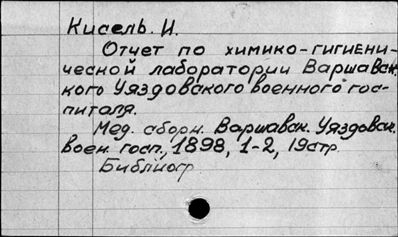 Кисель. И.
Отчет по химико-гигиени-
ческой лаборатории Варшавск.
кого Уяздовского военного гос-
питаля.
Мед. сборн. Варшавск. Уяздовск.
воен. госп., 1898, 1-2, 19стр.
Библиогр